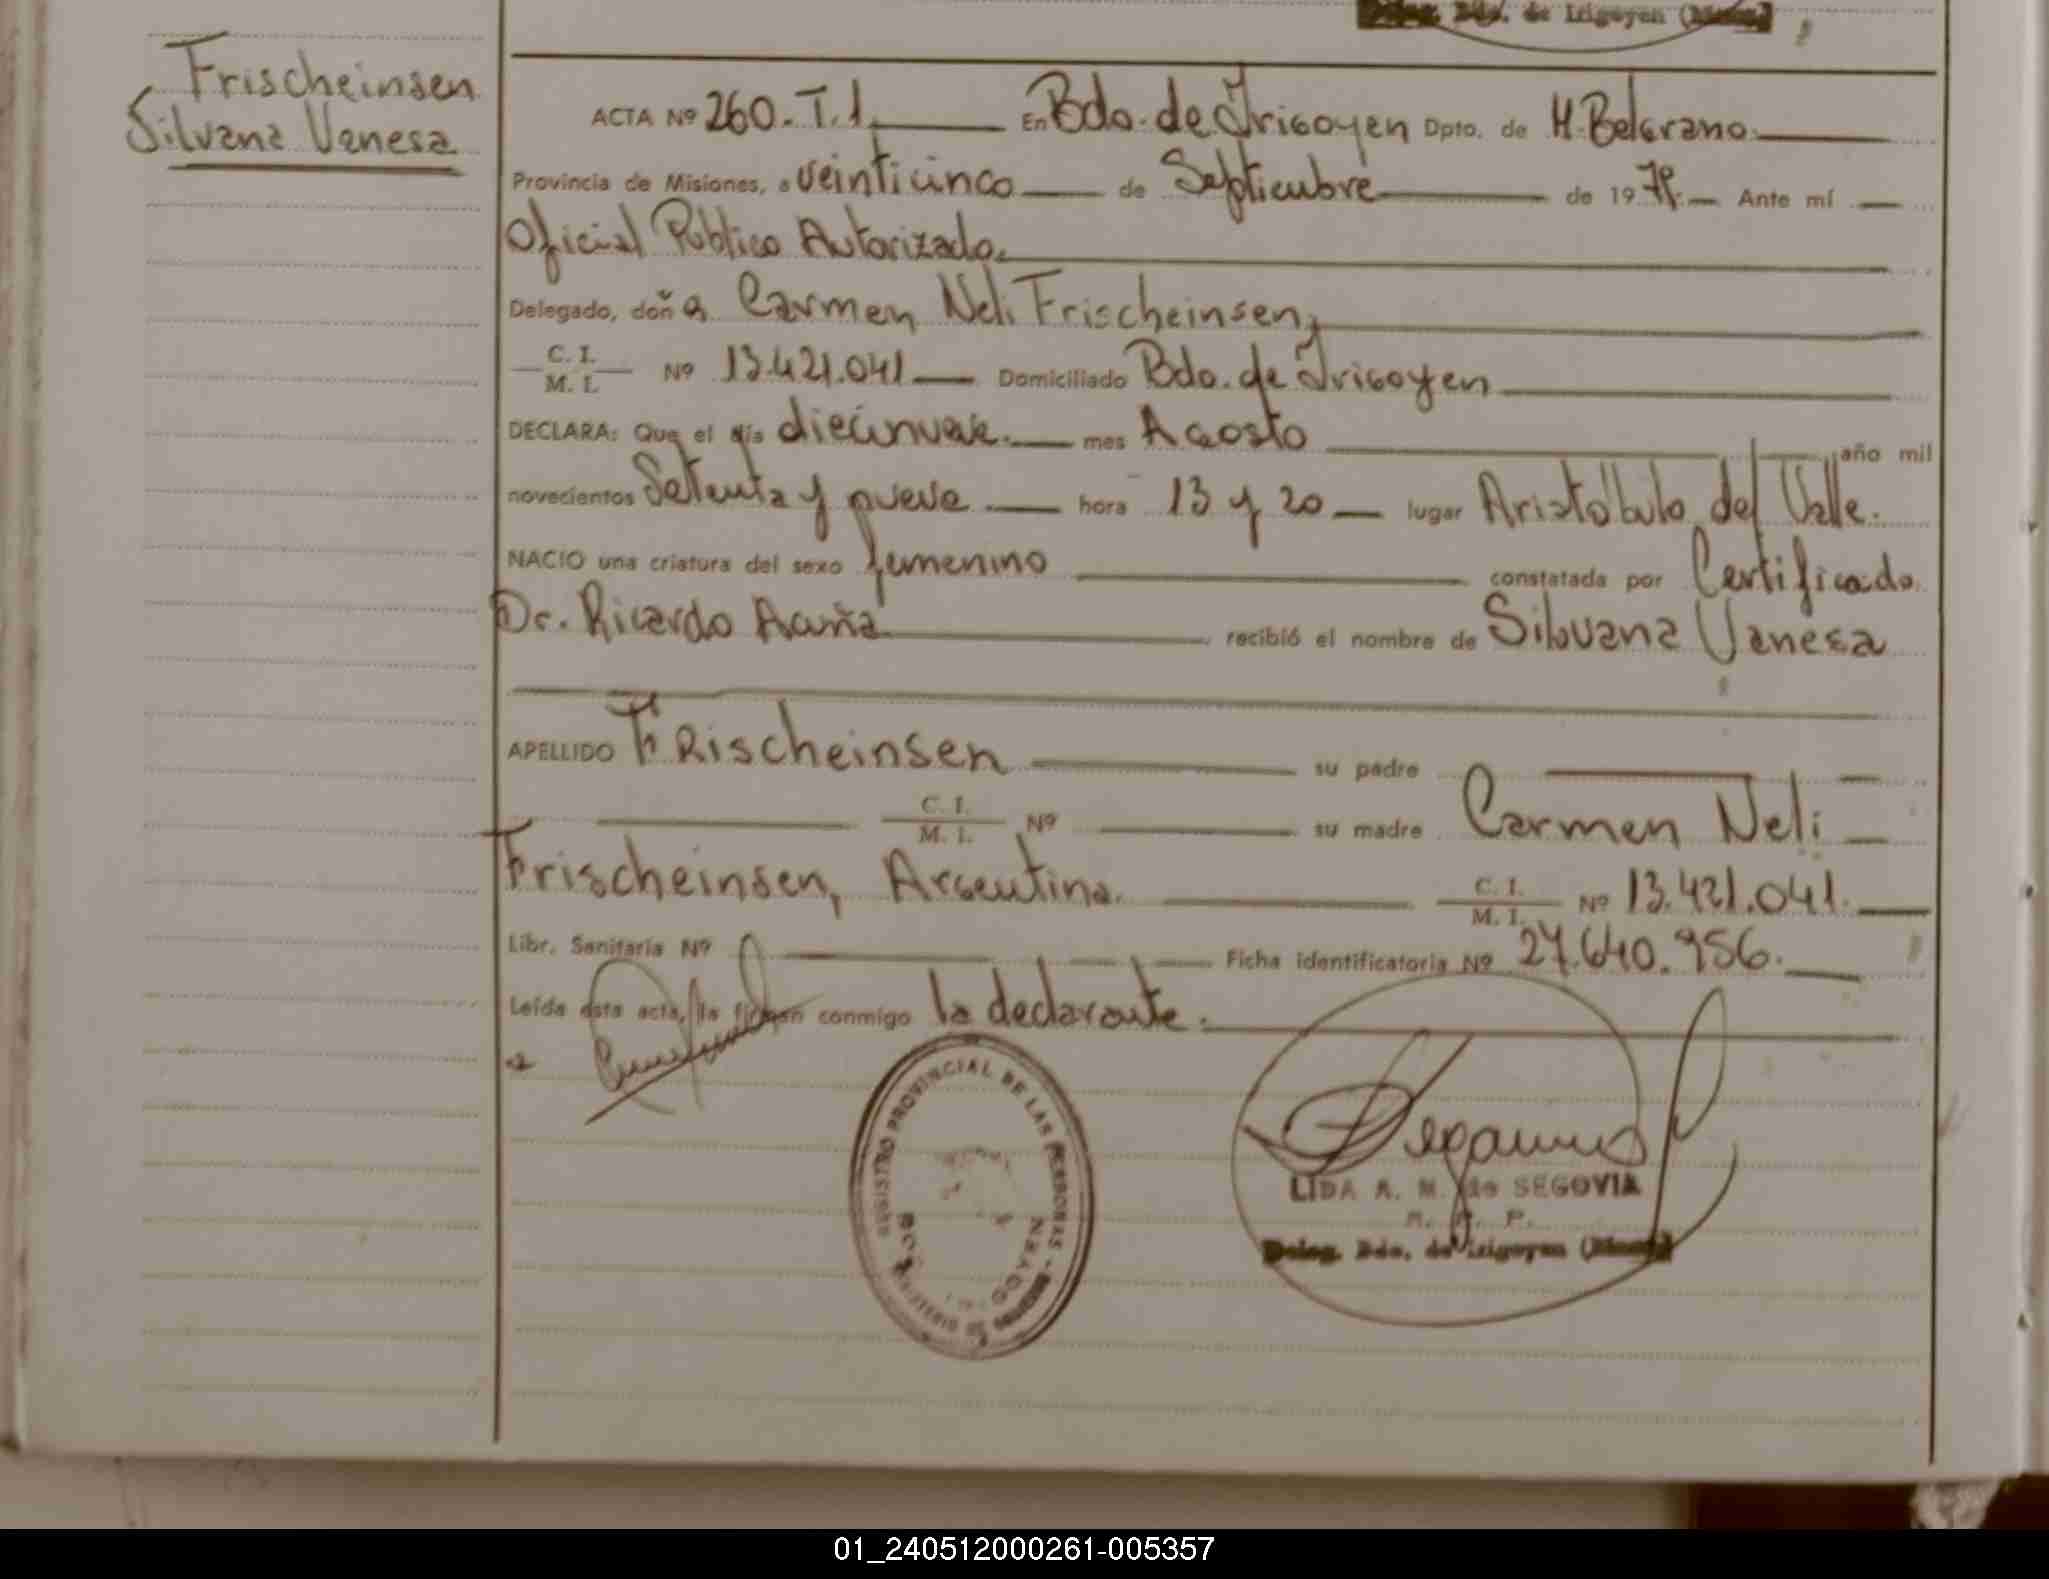 Deleg. Bdo. de Irigoyen (Mnes.)
Frischeinsen
Silvana Vanesa
ACTA Nº 260. T. 1 En Bdo. de Irigoyen Dpto. de M. Belgrano
Provincia de Misiones, a veinticinco de Septiembre de 1979. Ante mí
Oficial Público Autorizado.
Delegado, doña Carmen Neli Frischeinsen,
C. I.
M. I. Nº 13.421.041 Domiciliado Bdo. de Irigoyen
DECLARA: Que el día diecinueve. mes Agosto año mil
novecientos Setenta y nueve hora 13 y 20 lugar Aristóbulo del Valle.
NACIO una criatura del sexo femenino constatada por Certificado
Dr. Ricardo Acuña recibió el nombre de Silvana Vanesa
APELLIDO Frischeinsen su padre
C. I.
M. I. Nº su madre Carmen Neli
Frischeinsen, Argentina. C. I.
M. I. Nº 13.421.041.
Libr. Sanitaria Nº Ficha identificatoria Nº 27.640.956.
Leída esta acta, la firman conmigo la declarante.
REGISTRO PROVINCIAL DE LAS PERSONAS - MINISTERIO DE
LIDA A. M. de SEGOVIA
Deleg. Bdo. de Irigoyen (Mnes.)
01_240512000261-005357